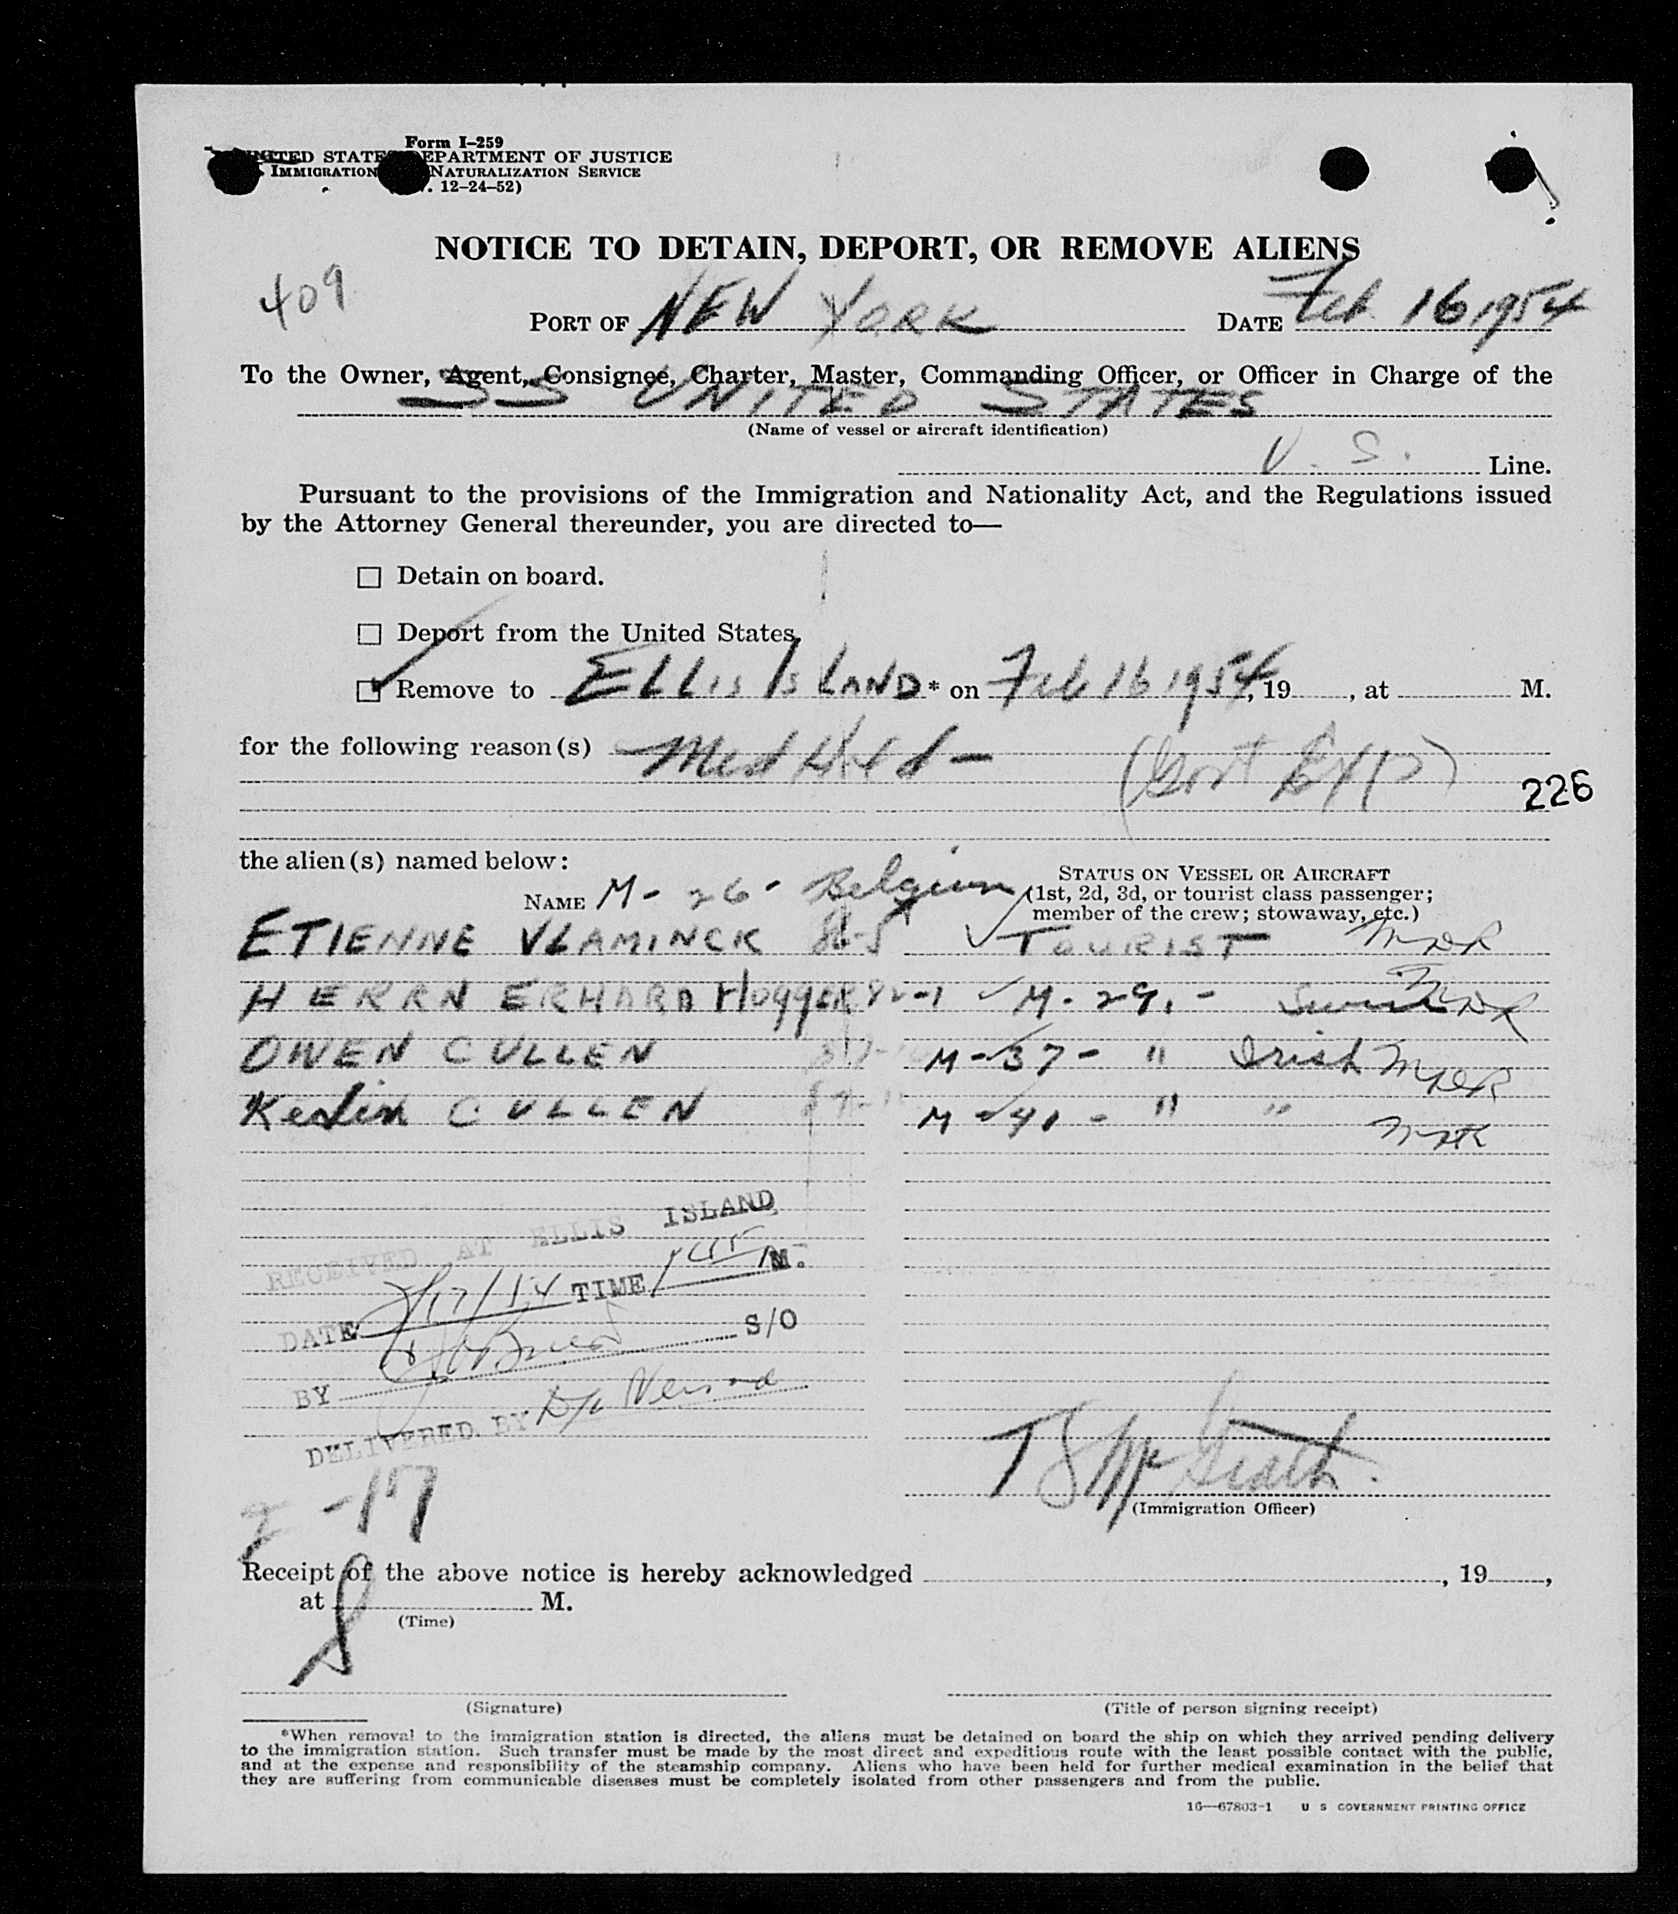 Form I-259
UNITED STATES DEPARTMENT OF JUSTICE
IMMIGRATION NATURALIZATION SERVICE
12-24-52)
NOTICE TO DETAIN, DEPORT, OR REMOVE ALIENS
409
PORT OF NEW YORK DATE Feb 16 1954
To the Owner, Agent, Consignee, Charter, Master, Commanding Officer, or Officer in Charge of the
SS UNITED STATES
(Name of vessel or aircraft identification)
U. S. Line.
Pursuant to the provisions of the Immigration and Nationality Act, and the Regulations issued
by the Attorney General thereunder, you are directed to—
☐ Detain on board.
☐ Deport from the United States.
☑ Remove to ELLIS ISLAND* on Feb 16 1954, 19, at M.
for the following reason(s) Med Held - (Govt Exp)
226
the alien(s) named below:
STATUS ON VESSEL OR AIRCRAFT
NAME M - 26 - Belgium (1st, 2d, 3d, or tourist class passenger;
member of the crew; stowaway, etc.)
ETIENNE VLAMINCK 82-5 TOURIST
HERRN ERHARD Hogger 82-1 M - 29, - Swiss
OWEN CULLEN M - 37 - " Irish
Kevin CULLEN M - 41 - " "
RECEIVED AT ELLIS ISLAND
DATE TIME M.
BY S/O
DELIVERED BY
2-17
T S McGrath
(Immigration Officer)
Receipt of the above notice is hereby acknowledged , 19 ,
at M.
(Time)
(Signature) (Title of person signing receipt)
*When removal to the immigration station is directed, the aliens must be detained on board the ship on which they arrived pending delivery
to the immigration station. Such transfer must be made by the most direct and expeditious route with the least possible contact with the public,
and at the expense and responsibility of the steamship company. Aliens who have been held for further medical examination in the belief that
they are suffering from communicable diseases must be completely isolated from other passengers and from the public.
16—67803-1 U S GOVERNMENT PRINTING OFFICE